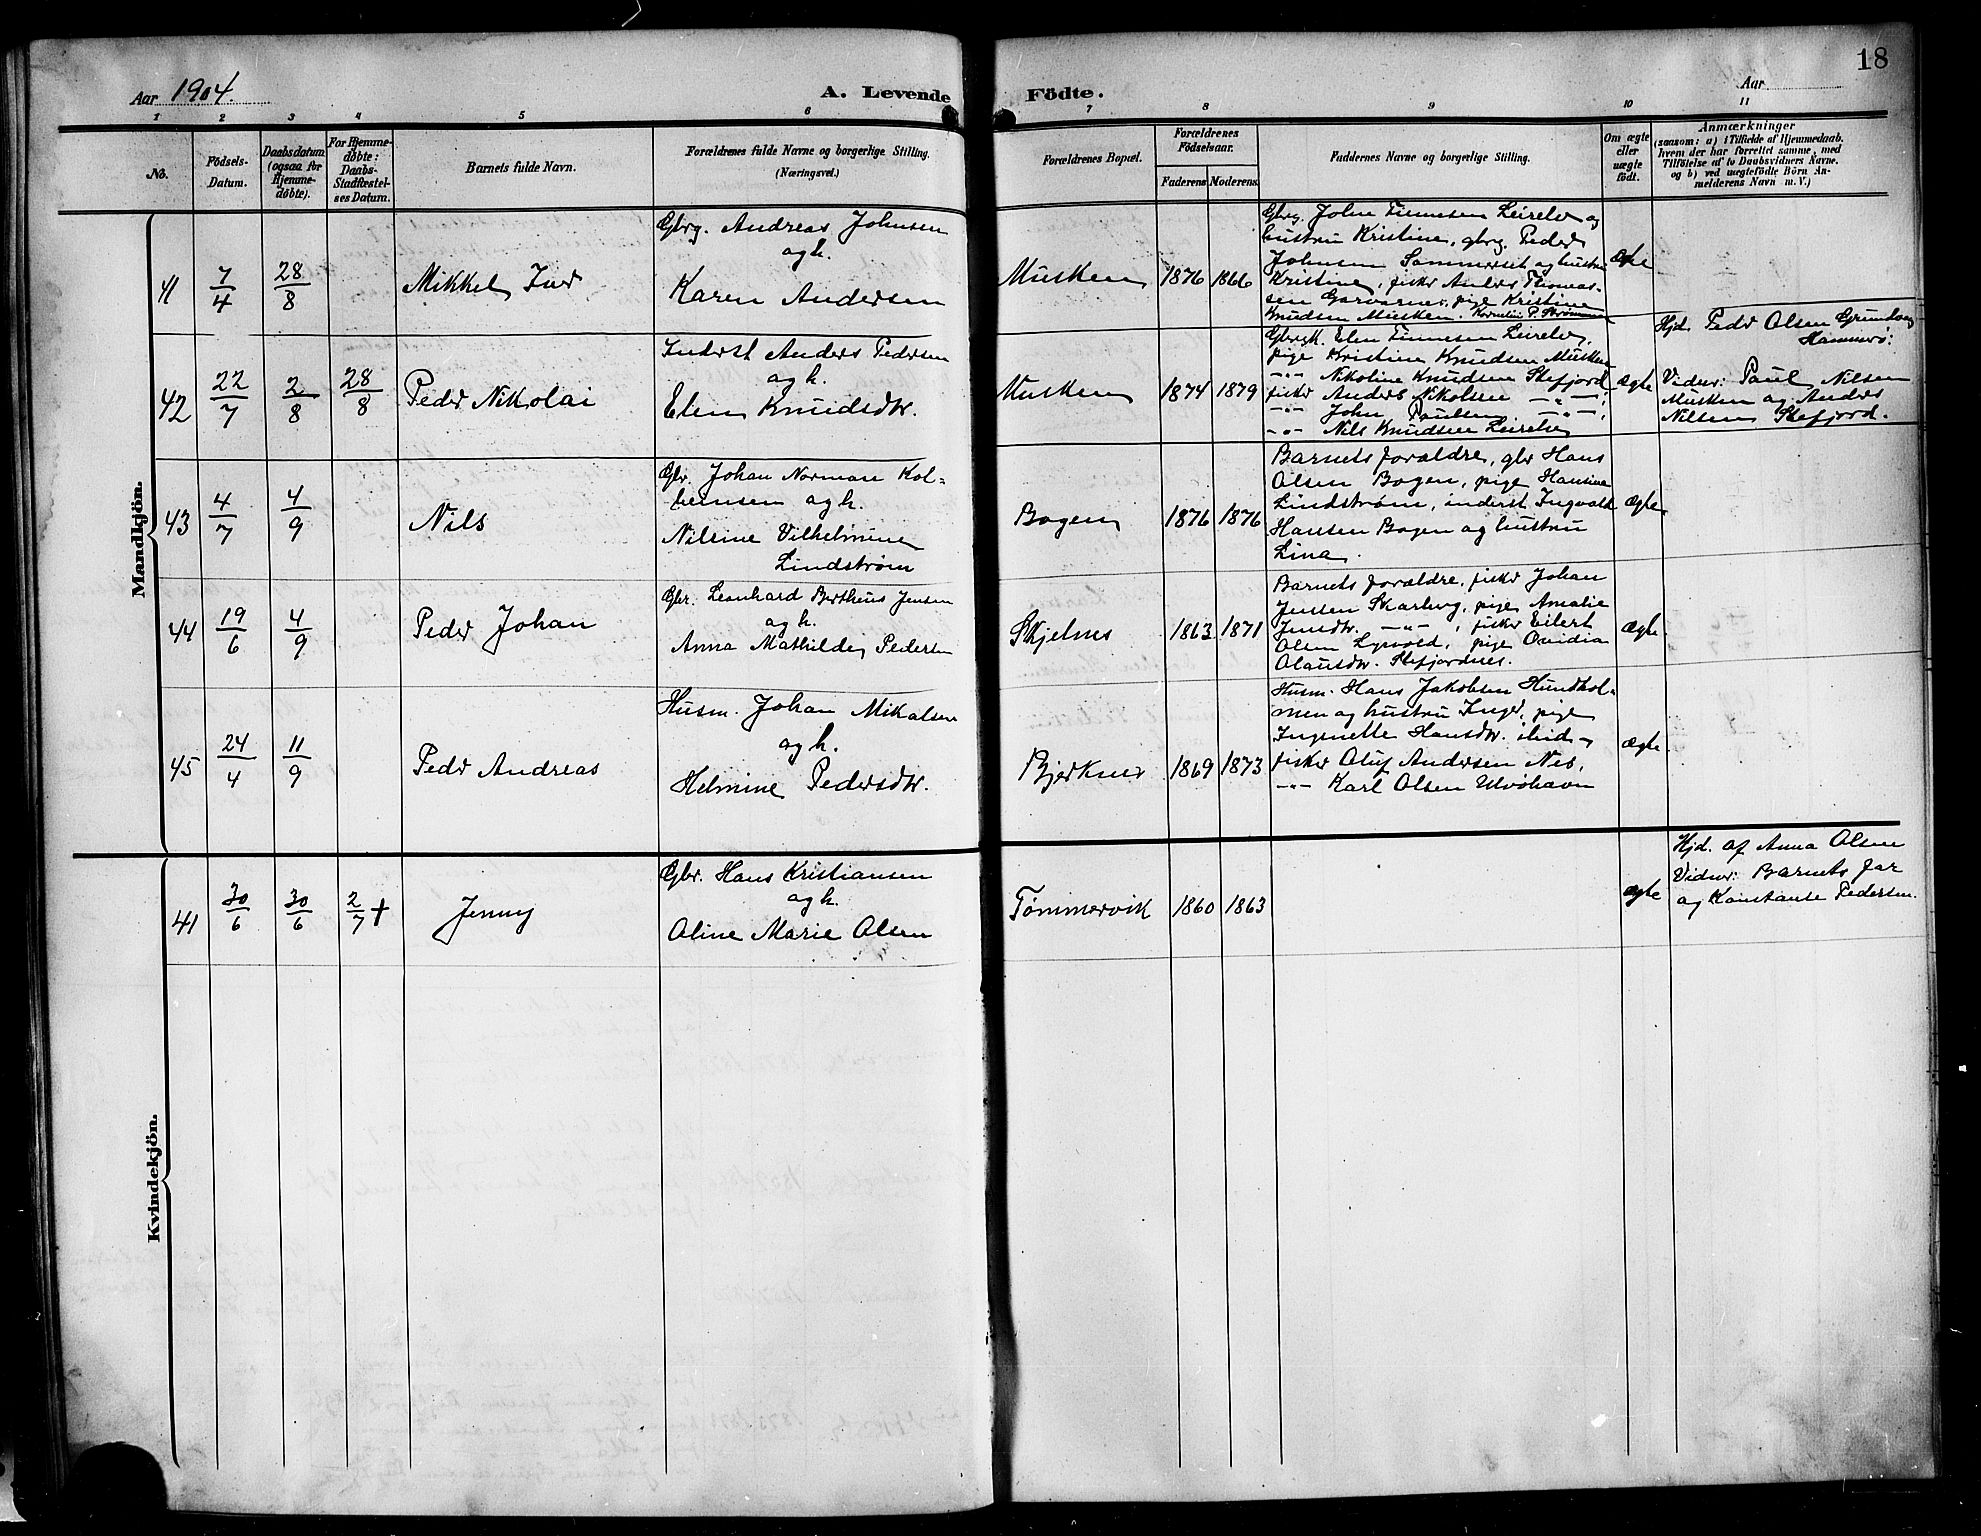 18
Aar 1904.
A. Levende Födte.
Aar
1 2 3 4 5 6 7 8 9 10 11
No.
Födsels-
Datum.
Daabsdatum
(ogsaa for
Hjemme-
döbte).
For Hjemme-
döbte:
Daabs-
Stadfæstel-
ses Datum.
Barnets fulde Navn.
Forældrenes fulde Navne og borgerlige Stilling.
(Næringsvei.)
Forældrenes Bopæl.
Forældrenes
Födselsaar.
Faderens Moderens
Faddernes Navne og borgerlige Stilling.
Om ægte
eller
uægte
födt.
Anmærkninger
(saasom: a) i Tilfælde af Hjemmedaab,
hvem der har forrettet samme, med
Tilföielse af to Daabsvidners Navne.
og b) ved uægtefödte Börn An-
melderens Navn m. V.)
Mandkjön.
41
7/4
28/8
Mikkel
Gbrg. Andreas Johnsen
og h.
Karen Andersen
Musken
1876 1866
Gbrg. John Finnesen Leirelv og
hustru Kristine, gbrg. Peder
Johnsen Sommerset og hustru
Kristine, fisker Anders Thomas-
sen pige Kristine
Knudsen Musken.
ægte
42
22/7
2/8
28/8
Peder Nikolai
Inderst Anders Pedersen
og h.
Elen Knudsdtr.
Musken
1874 1879
Elen Finnesen Leirelv,
pige Kristine Knudsen Musken
-"- Nikoline Knudsen Stefjord
fisker Anders Nikolsen -"-
-"- John Paulsen -"-
-"- Nils Knudsen Leirelv
ægte
Hjd. Peder Olsen
Hammerø:
Vidner: Paul Nilsen
Musken og Anders
Nilsen Stefjord.
43
4/7
4/9
Nils
Gbr. Johan Norman Kol-
beinsen og h.
Nilsine Vilhelmine
Lindstrøm
Bogen
1876 1876
Barnets forældre, gbr Hans
Olsen Bogen, pige Hansine
Lindstrøm, inderst Ingvald
Hansen Bogen og hustru
Lina.
ægte
44
19/6
4/9
Peder Johan
Gbr. Leonhard Bertheus Jensen
og h.
Anna Mathilde Pedersen
Skjelnes
1863 1871
Barnets forældre, fisker Johan
Jensen Skarberg, pige Amalie
Jensdtr. -"-, fisker Eilert
Olsen pige Ovidia
Olausdtr. Stefjordnes.
ægte
45
24/4
11/9
Peder Andreas
Husm. Johan Mikalsen
og h.
Helmine Pedersdtr.
Bjerknes
1869 1873
Husm. Hans Jakobsen Hundhol-
men og hustru Inger, pige
Ingenette Hansdtr. ibid-
fisker Oluf Andersen Nes,
-"- Karl Olsen Ulvøhavn
ægte.
Kvindekjön.
41
30/6
30/6
2/7 +
Jenny
Gbr. Hans Kristiansen
og h.
Oline Marie Olsen
Tømmervik
1860 1863
ægte
Hjd. af Anna Olsen
Vidner: Barnets far
og Konstanse Pedersen.